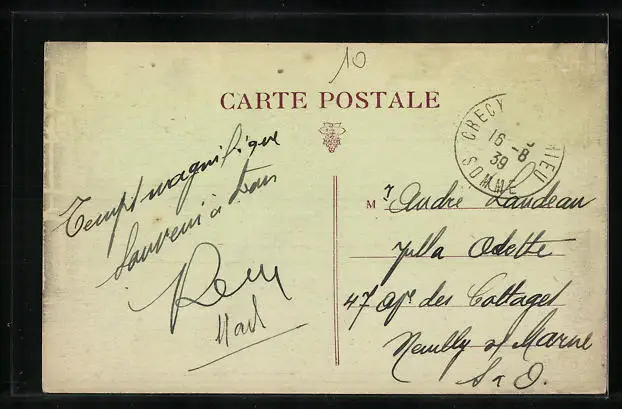 10
CARTE POSTALE
CRECY
MIEU
SOMME
16-8
39
Temps magnifique
Souvenir à tous
Mr André Landeau
Villa Odette
47 des Cottages
Neuilly s/ Marne
S & O.